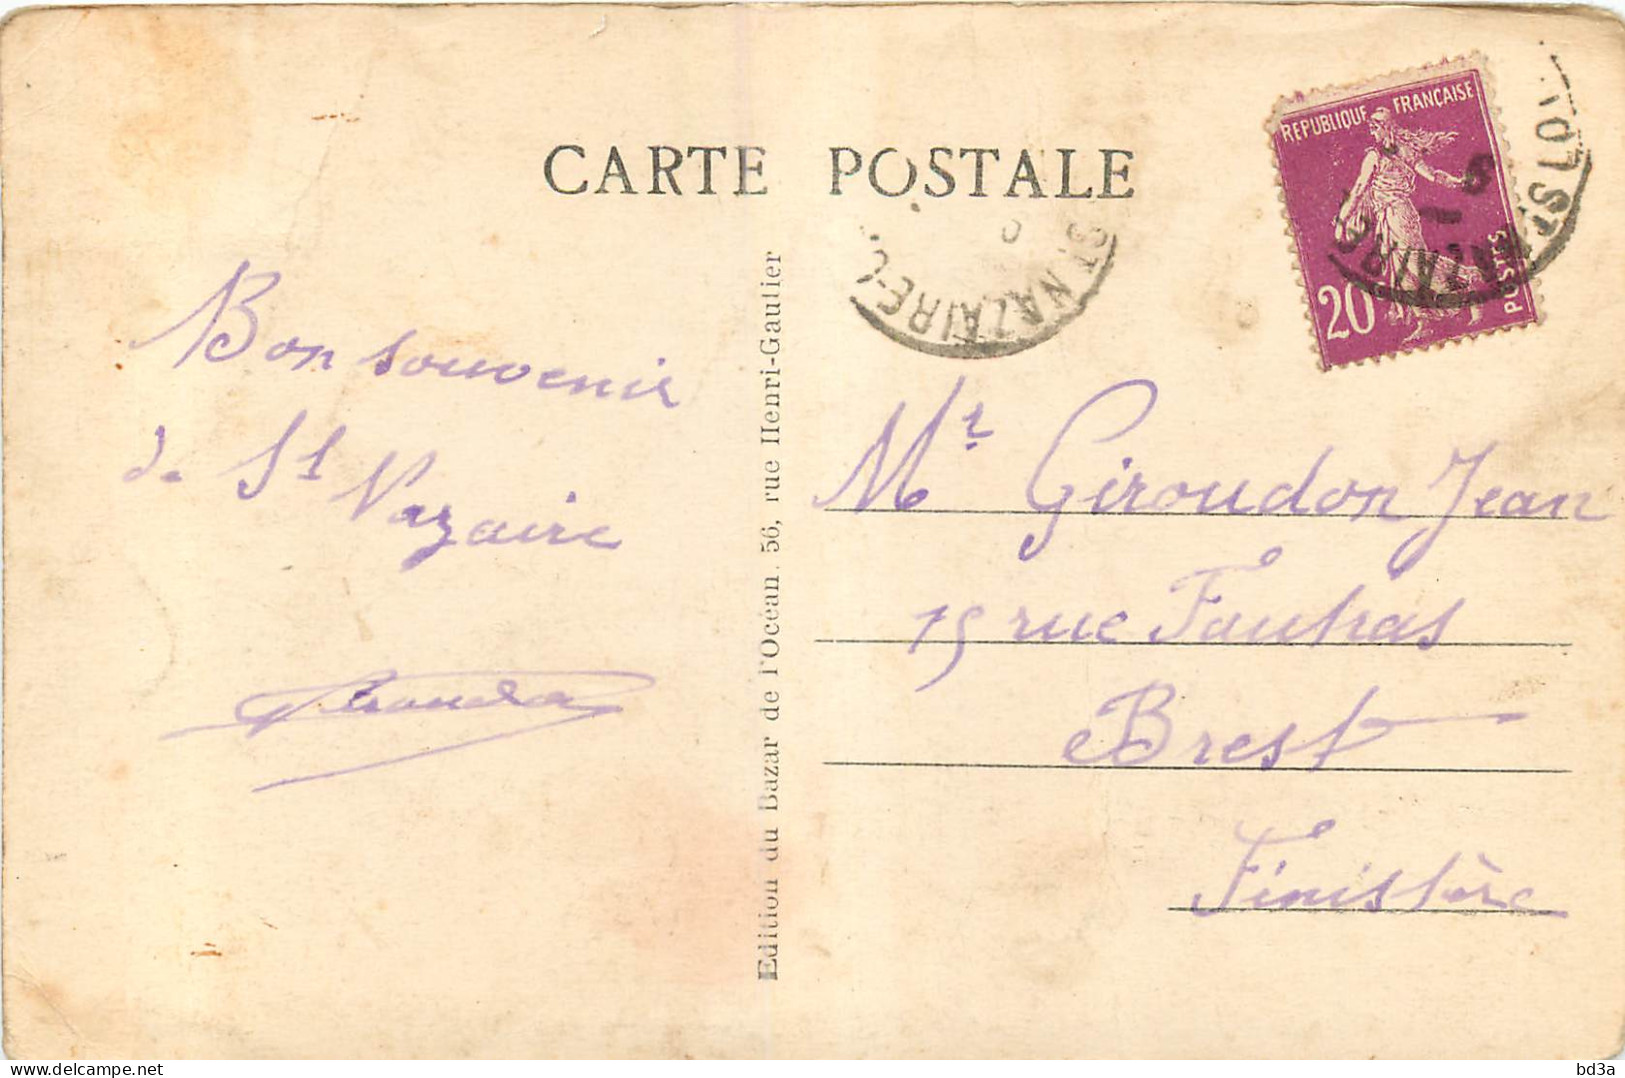 CARTE POSTALE
REPUBLIQUE FRANÇAISE
20c
POSTES
ST NAZAIRE
ST NAZAIRE
Bon souvenir
de St
Nazaire
Mr Giroudon Jean
15 rue Fautras
Brest
Finistère
Edition du Bazar de l'Océan, 56, rue Henri-Gautier
bd3a